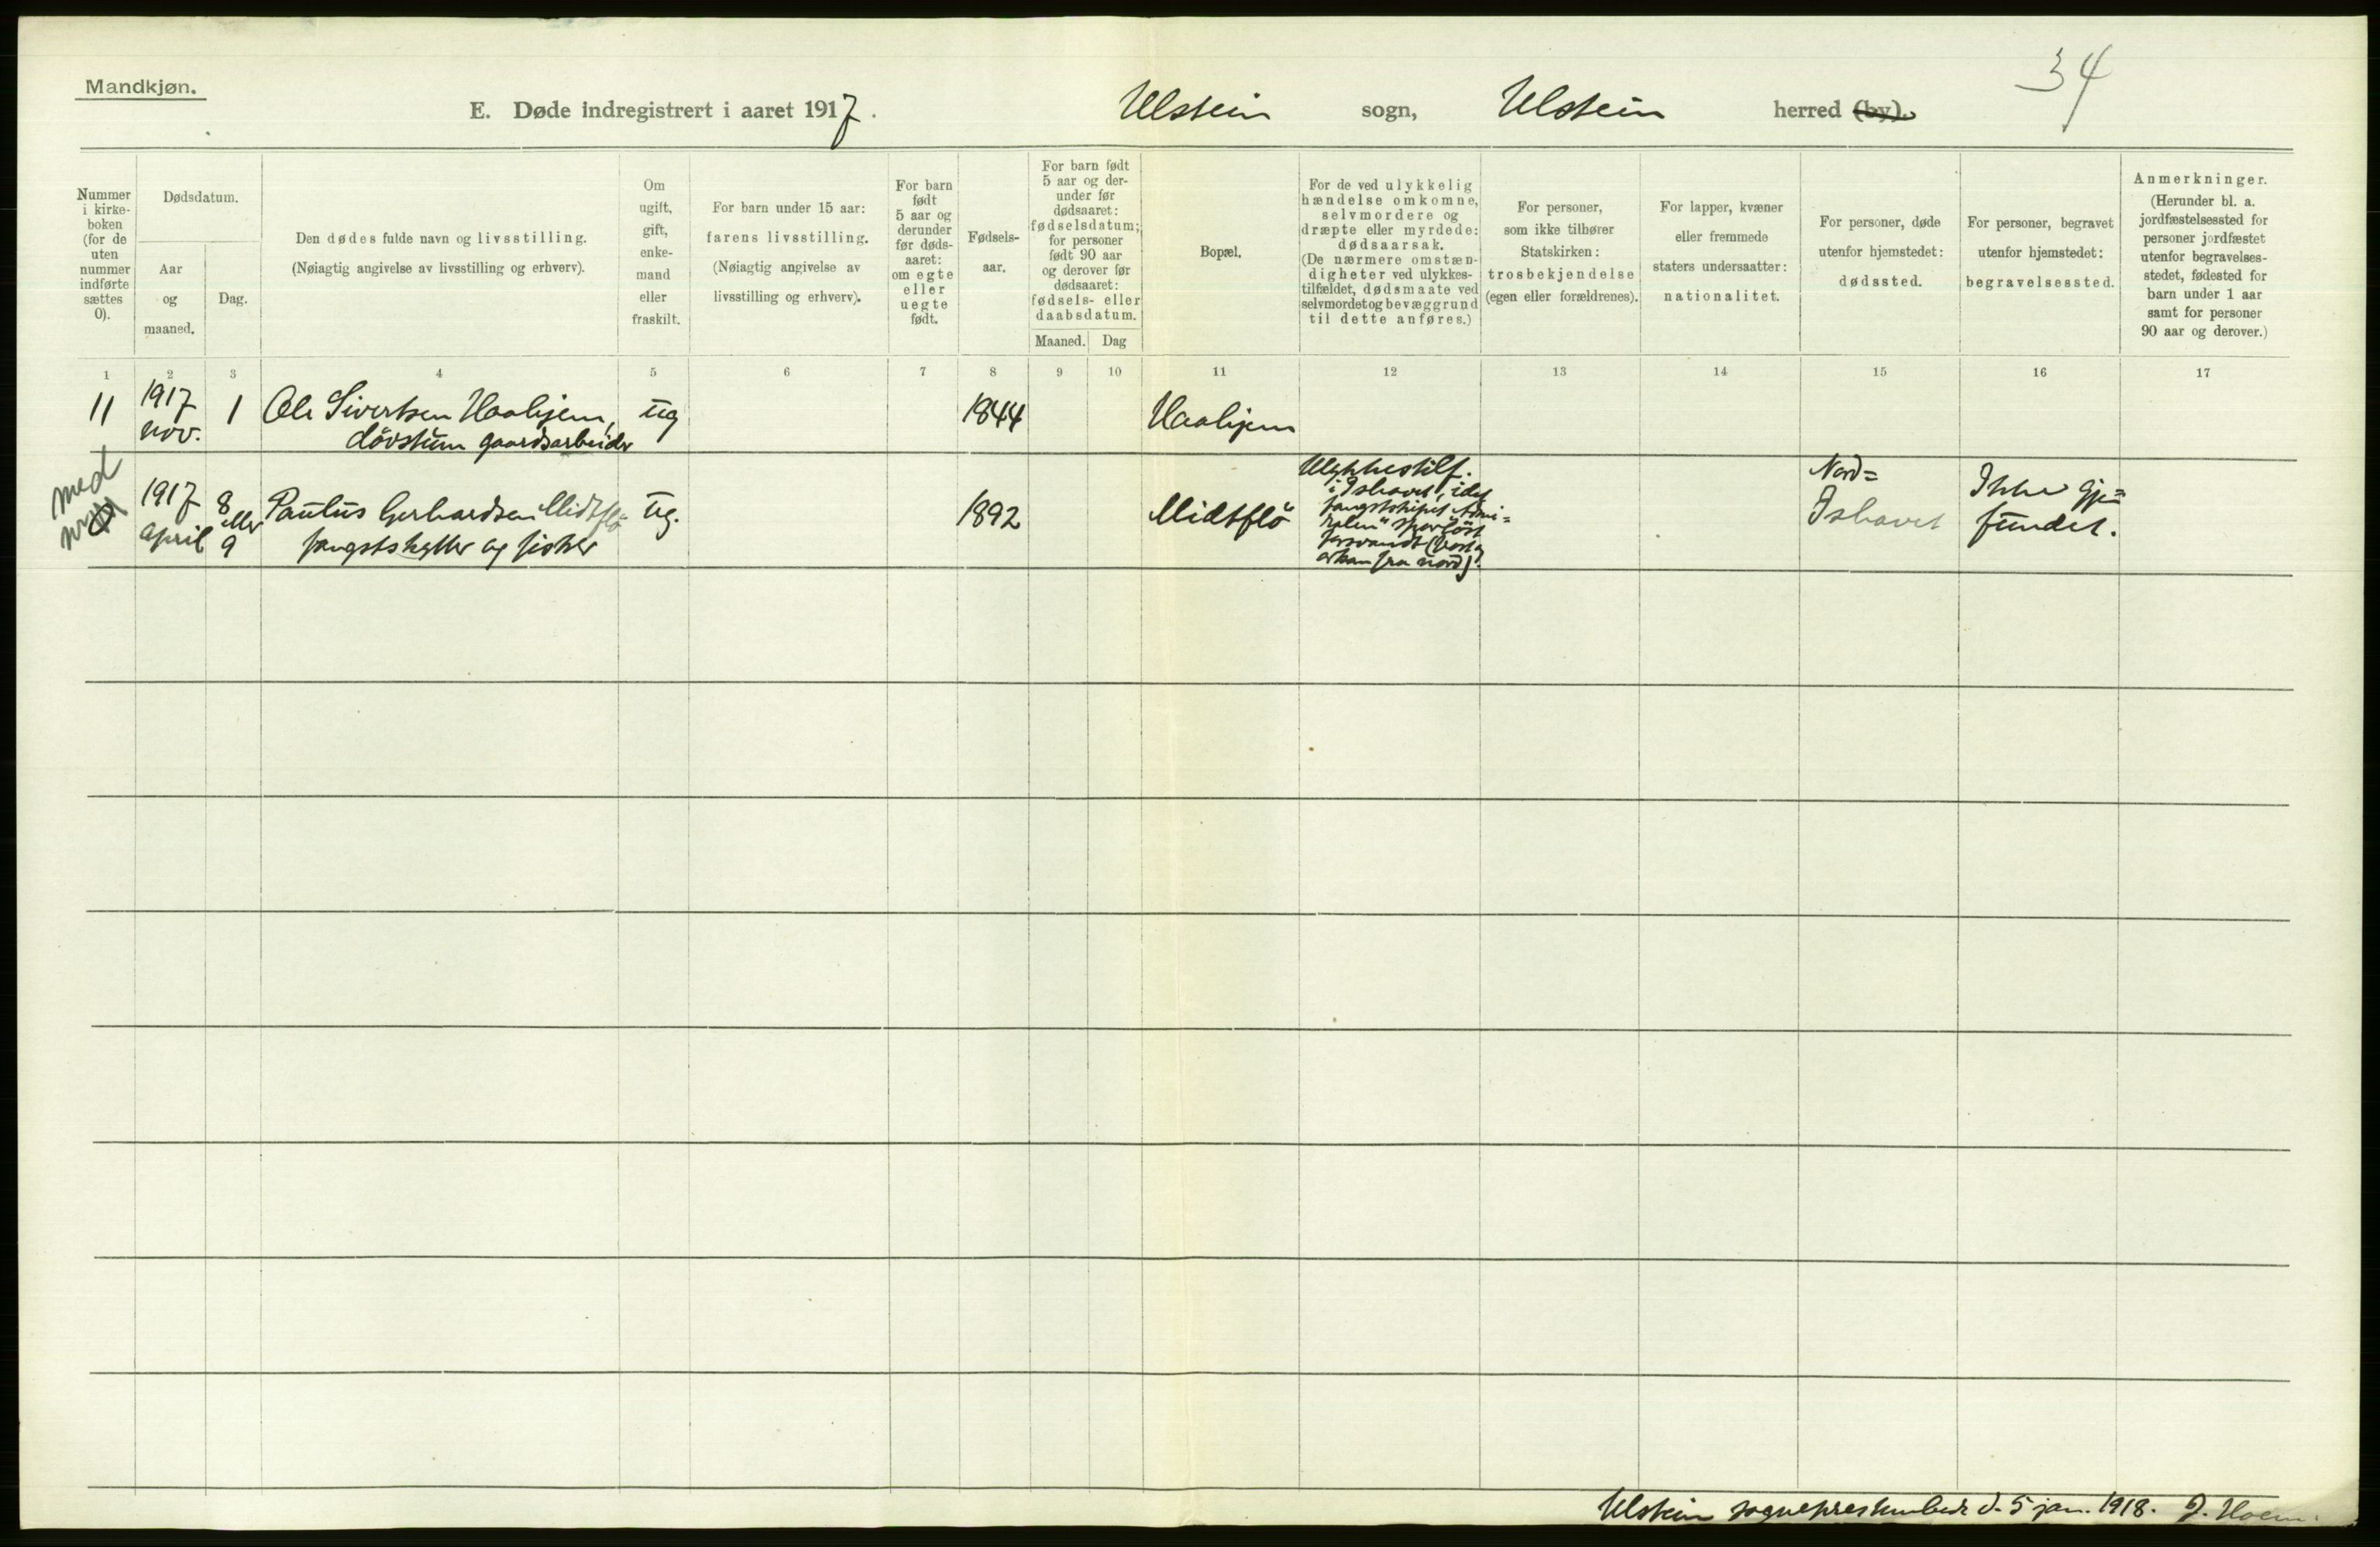 Mandkjøn.
34
E. Døde indregistrert i aaret 1917.
Ulstein sogn, Ulstein herred (by).
Nummer
i kirke-
boken
(for de
uten
nummer
indførte
sættes
0).
Dødsdatum.
Aar
og
maaned.
Dag.
Den dødes fulde navn og livsstilling.
(Nøiagtig angivelse av livsstilling og erhverv).
Om
ugift,
gift,
enke-
mand
eller
fraskilt.
For barn under 15 aar:
farens livsstilling.
(Nøiagtig angivelse av
livsstilling og erhverv).
For barn
født
5 aar og
derunder
før døds-
aaret:
om egte
eller
uegte
født.
Fødsels-
aar.
For barn født
5 aar og der-
under før
dødsaaret:
fødselsdatum;
for personer
født 90 aar
og derover før
dødsaaret:
fødsels- eller
daabsdatum.
Maaned. Dag
Bopæl.
For de ved ulykkelig
hændelse omkomne,
selvmordere og
dræpte eller myrdede:
dødsaarsak.
(De nærmere omstæn-
digheter ved ulykkes-
tilfældet, dødsmaate ved
selvmordet og bevæggrund
til dette anføres.)
For personer,
som ikke tilhører
Statskirken:
trosbekjendelse
(egen eller forældrenes).
For lapper, kvæner
eller fremmede
staters undersaatter:
nationalitet.
For personer, døde
utenfor hjemstedet:
dødssted.
For personer, begravet
utenfor hjemstedet:
begravelsessted.
Anmerkninger.
(Herunder bl. a.
jordfæstelsessted for
personer jordfæstet
utenfor begravelses-
stedet, fødested for
barn under 1 aar
samt for personer
90 aar og derover.)
1 2 3 4 5 6 7 8 9 10 11 12 13 14 15 16 17
11
1917
nov.
1
Ole Sivertsen Haahjem,
døvstum gaardsarbeider
ug
1844
Haahjem
med
1917
april
8
eller
9
Paulus Gerhardsen Midtflø
fangstskytter og fisker
ug.
1892
Midtflø
Ulykkestilf.
i Ishavet, idet
fangstskipet "Admi=
ralen" sporløst
forsvandt
orkan fra nord).
Nord=
Ishavet
Ikke gjen=
fundet.
Ulstein sogneprestembede d. 5 jan. 1918. J. Hoem.